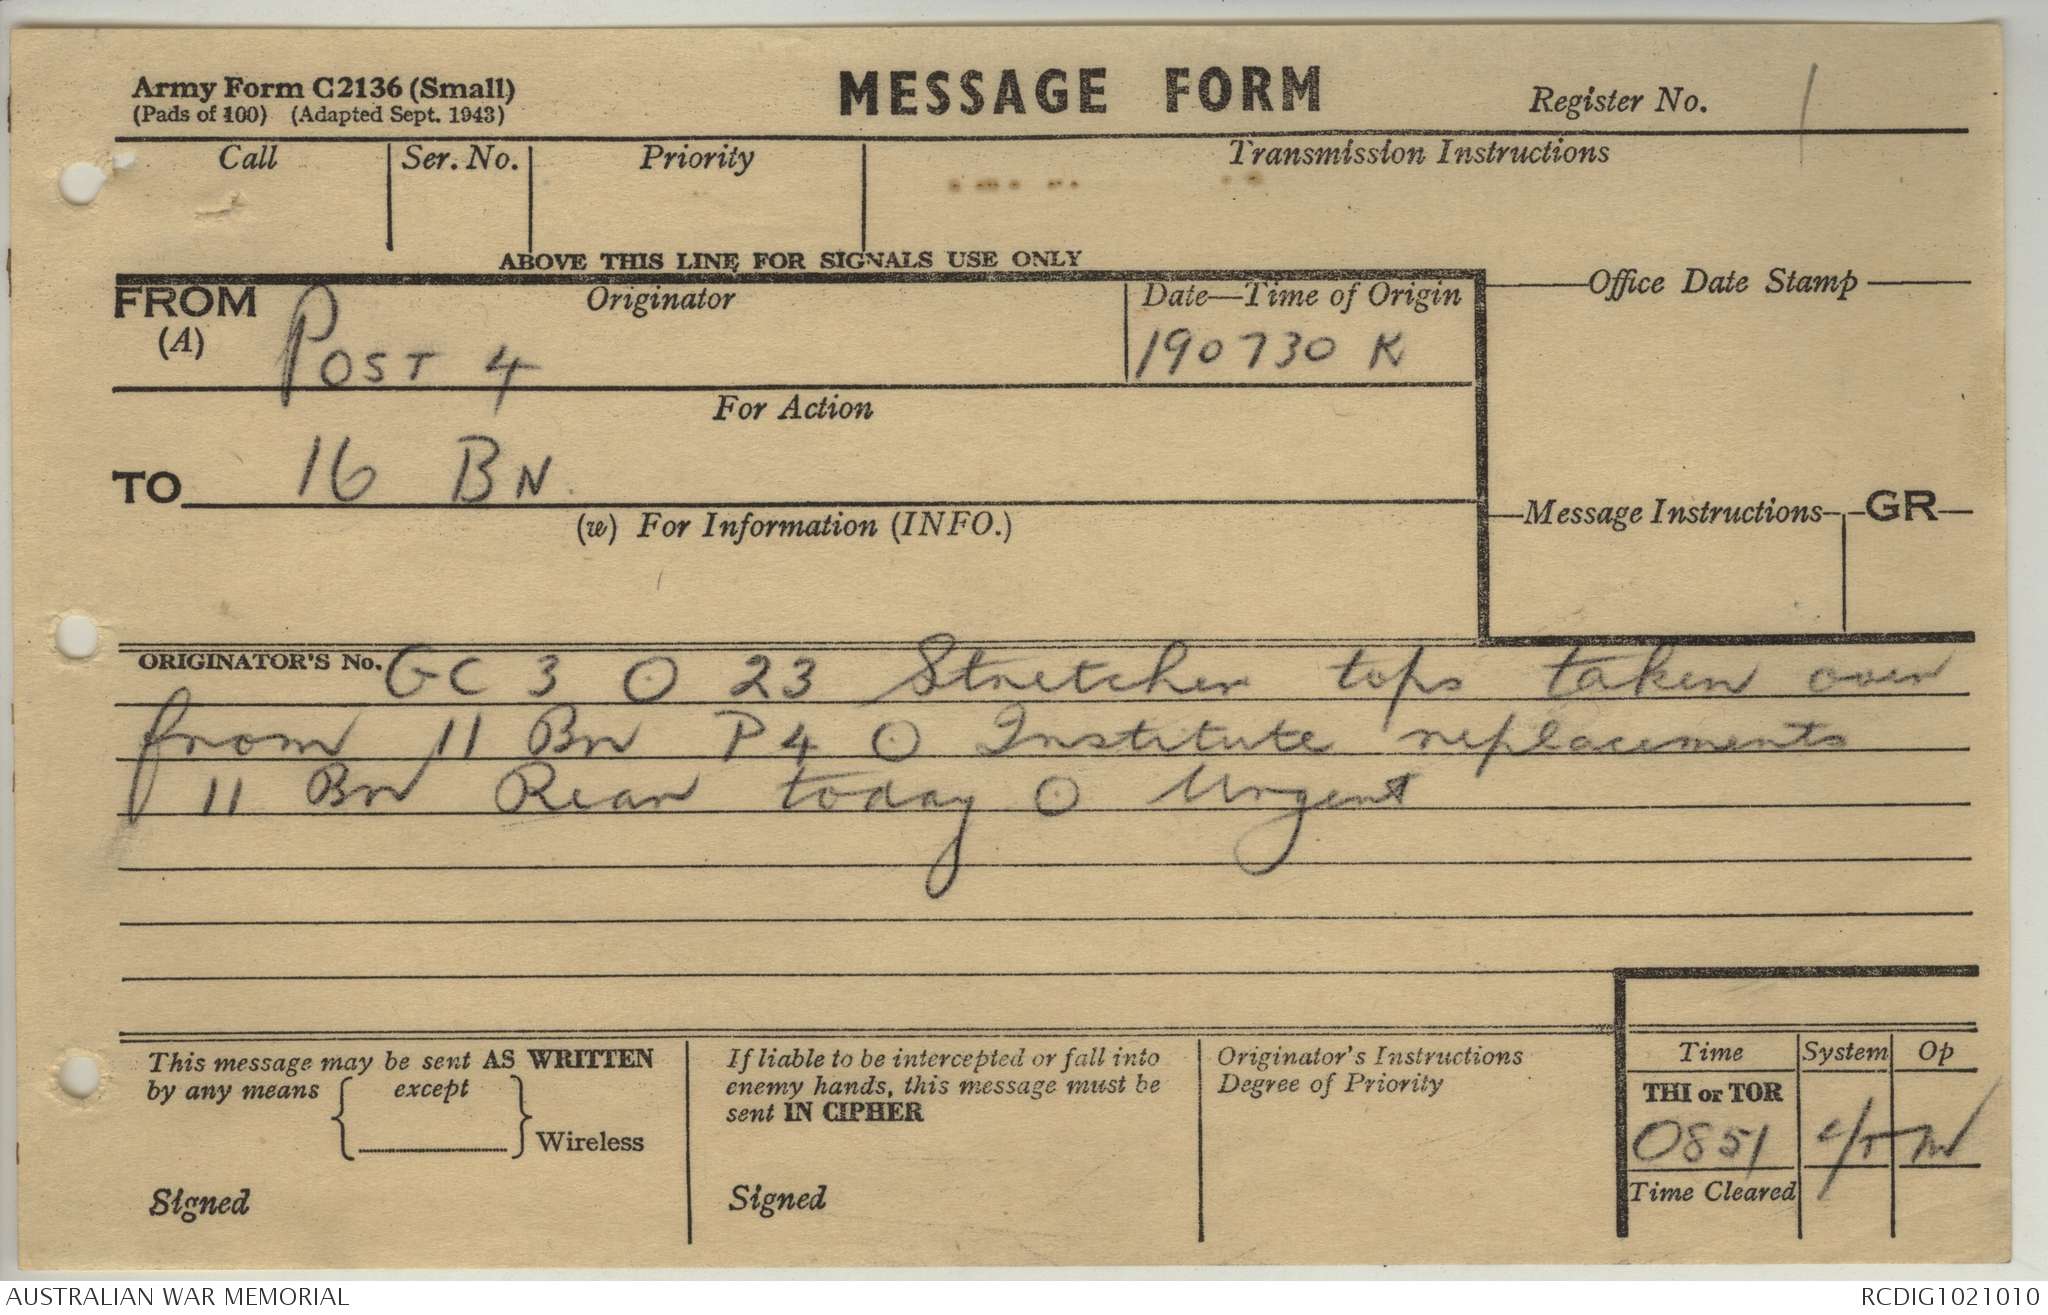 Army Form C2136 (Small)
(Pads of 100) (Adapted Sept. 1943)
MESSAGE FORM
Register No. 1
Call Ser. No. Priority Transmission Instructions
ABOVE THIS LINE FOR SIGNALS USE ONLY
FROM (A) Originator
Post 4
Date—Time of Origin
190730 K
Office Date Stamp
For Action
TO 16 BN
(w) For Information (INFO.)
Message Instructions GR
ORIGINATOR'S No. GC 3 O 23 Stretcher tops taken over
from 11 Bn P4 O Institute replacements
11 Bn Rear today O Urgent
This message may be sent AS WRITTEN
by any means except
Wireless
Signed
If liable to be intercepted or fall into
enemy hands, this message must be
sent IN CIPHER
Signed
Originator's Instructions
Degree of Priority
Time System Op
THI or TOR
0851
Time Cleared
AUSTRALIAN WAR MEMORIAL RCDIG1021010